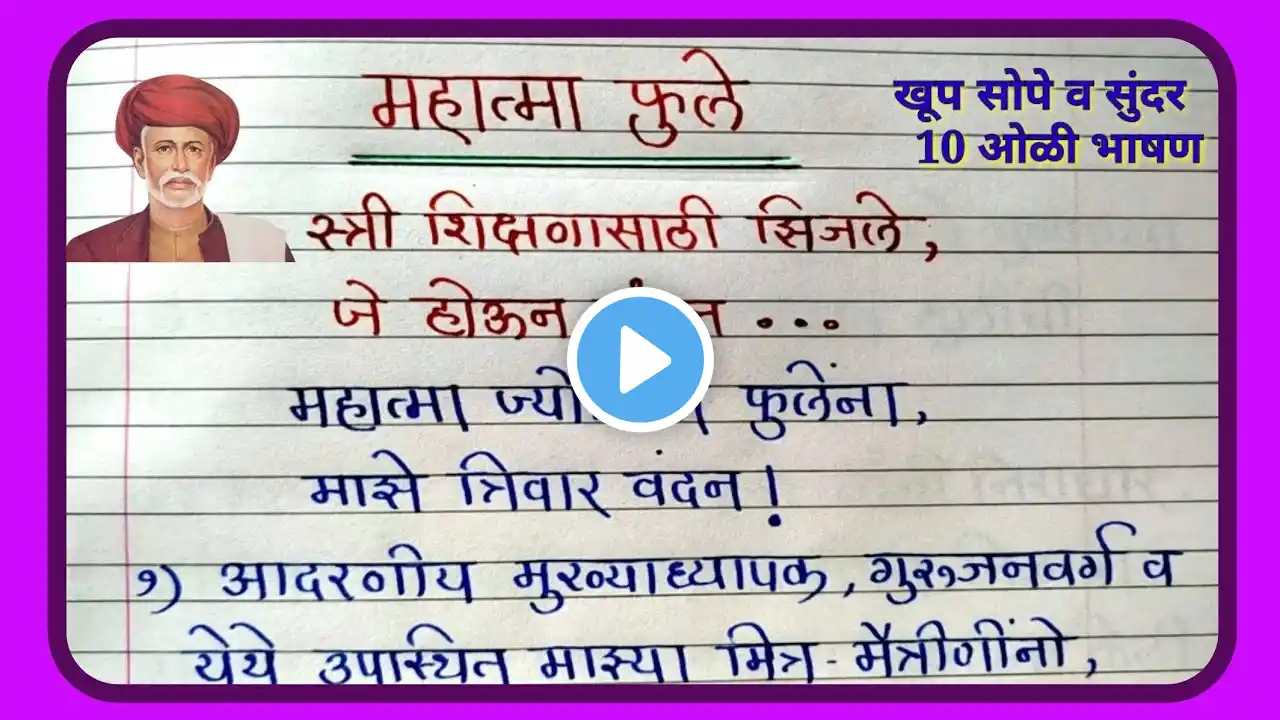 महात्मा फुले
खूप सोपे व सुंदर
10 ओळी भाषण
स्त्री शिक्षणासाठी झिजले,
जे होऊन ...
महात्मा फुलेंना,
माझे त्रिवार वंदन!
१) आदरणीय मुख्याध्यापक, गुरुजनवर्ग व
येथे उपस्थित माझ्या मित्र-मैत्रीणींनो,